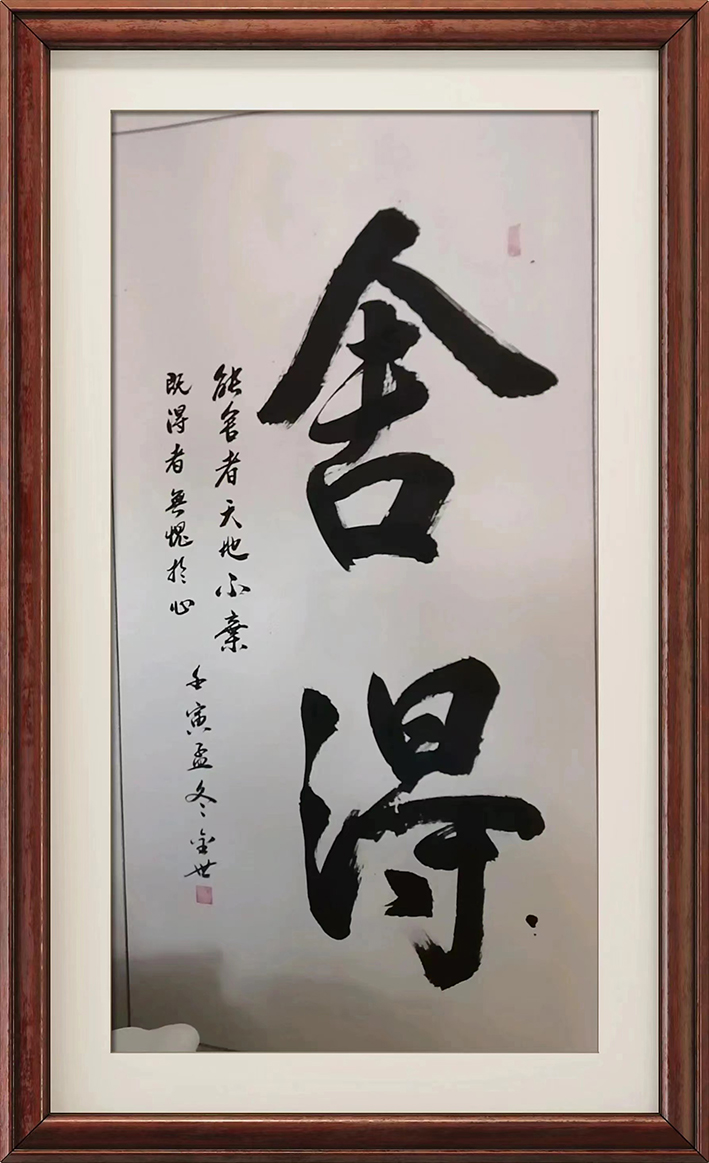 舍得
能舍者天地不棄
既得者無愧於心
壬寅孟冬金世